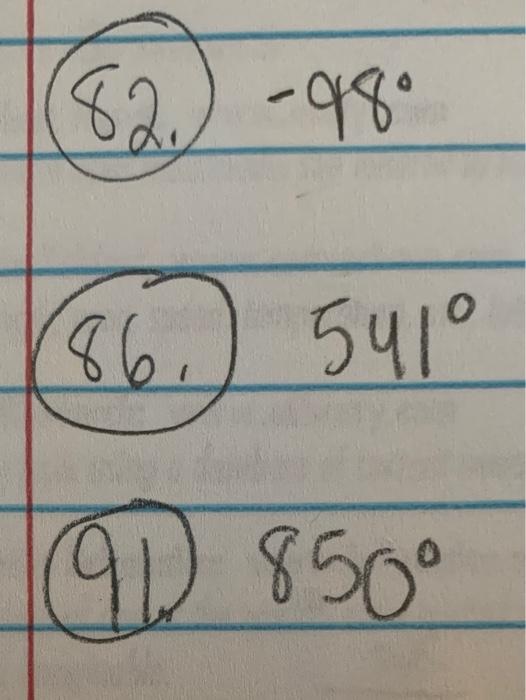 82. -98°
86. 541°
91. 850°